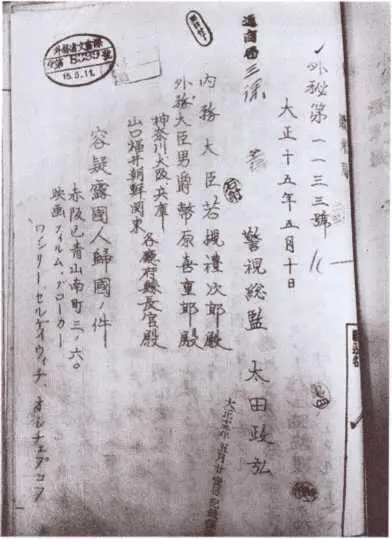 外秘第一一三三號
大正十五年五月十日
警視総監 太田政弘
通商局 三課
内務大臣若槻禮次郎殿
外務大臣男爵幣原喜重郎殿
神奈川大阪兵庫
山口福井朝鮮関東
各廳府縣長官殿
容疑露國人歸國ノ件
赤阪区青山南町三ノ六〇
映画フィルム、ブローカー
ワシリー、セルゲイウィチ、オシチェプコフ
外務省文書課
15.5.11.